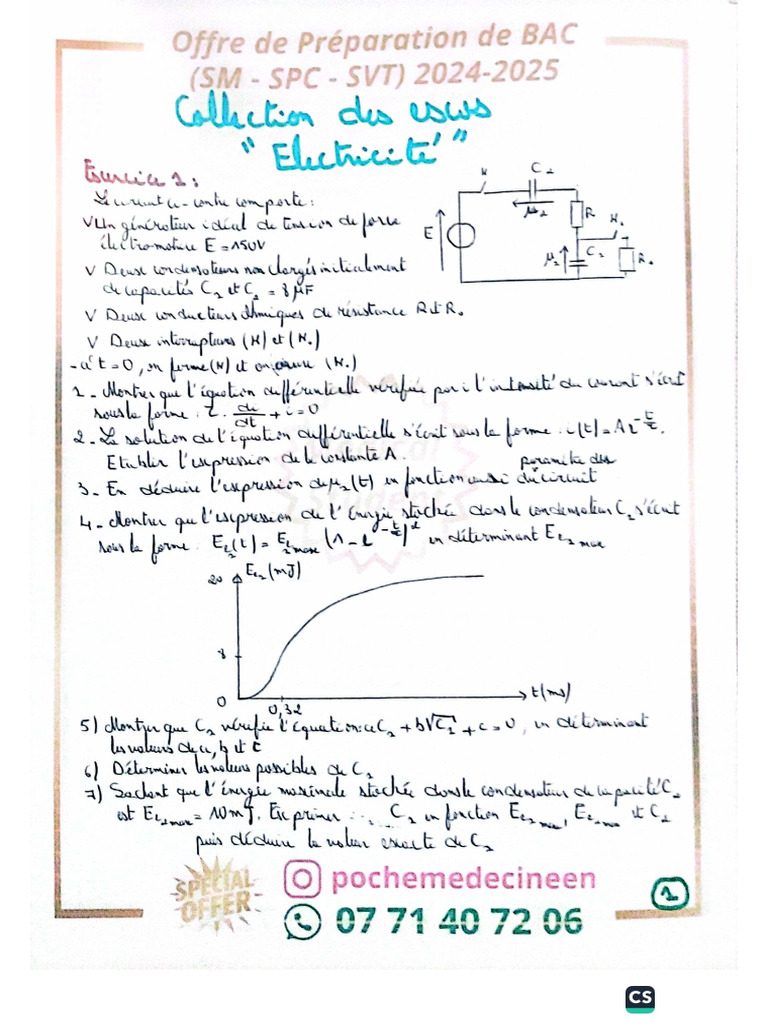 Offre de Préparation de BAC
(SM - SPC - SVT) 2024-2025
Collection des exos
"Electricité"
Exercice 1 :
Le circuit ci-contre comporte :
V Un générateur idéal de tension de force
électromotrice E = 150V
V Deux condensateurs non chargés initialement
de capacités C2 et C1 = 8 µF
V Deux conducteurs ohmiques de résistance R et R0
V Deux interrupteurs (K) et (K0)
K C2 u2 R K0 E u1 C1 R0
- à t=0, on ferme (K) et on ouvre (K0)
1 - Montrer que l'équation différentielle vérifiée par i l'intensité du courant s'écrit
sous la forme : τ. di/dt + i = 0
2 - La solution de l'équation différentielle s'écrit sous la forme : i(t) = A e^-t/τ.
Etablir l'expression de la constante A
3 - En déduire l'expression de u2(t) en fonction des paramètres du circuit
4 - Montrer que l'expression de l'énergie stockée dans le condensateur C2 s'écrit
sous la forme : Ee2(t) = Ee2max (1 - e^-t/τ)^2 en déterminant Ee2max
20 Ee2(mJ)
8
0
0,32
t(ms)
5) Montrer que C2 vérifie l'équation : aC2 + b√C2 + c = 0, en déterminant
les valeurs de a, b et c
6) Déterminer les valeurs possibles de C2
7) Sachant que l'énergie maximale stockée dans le condensateur de capacité C1
est Ee1max = 10mJ. Exprimer C2 en fonction Ee1max, Ee2max et C1
puis déduire la valeur exacte de C2
SPECIAL
OFFER
pochemedecineen
07 71 40 72 06
1
CS